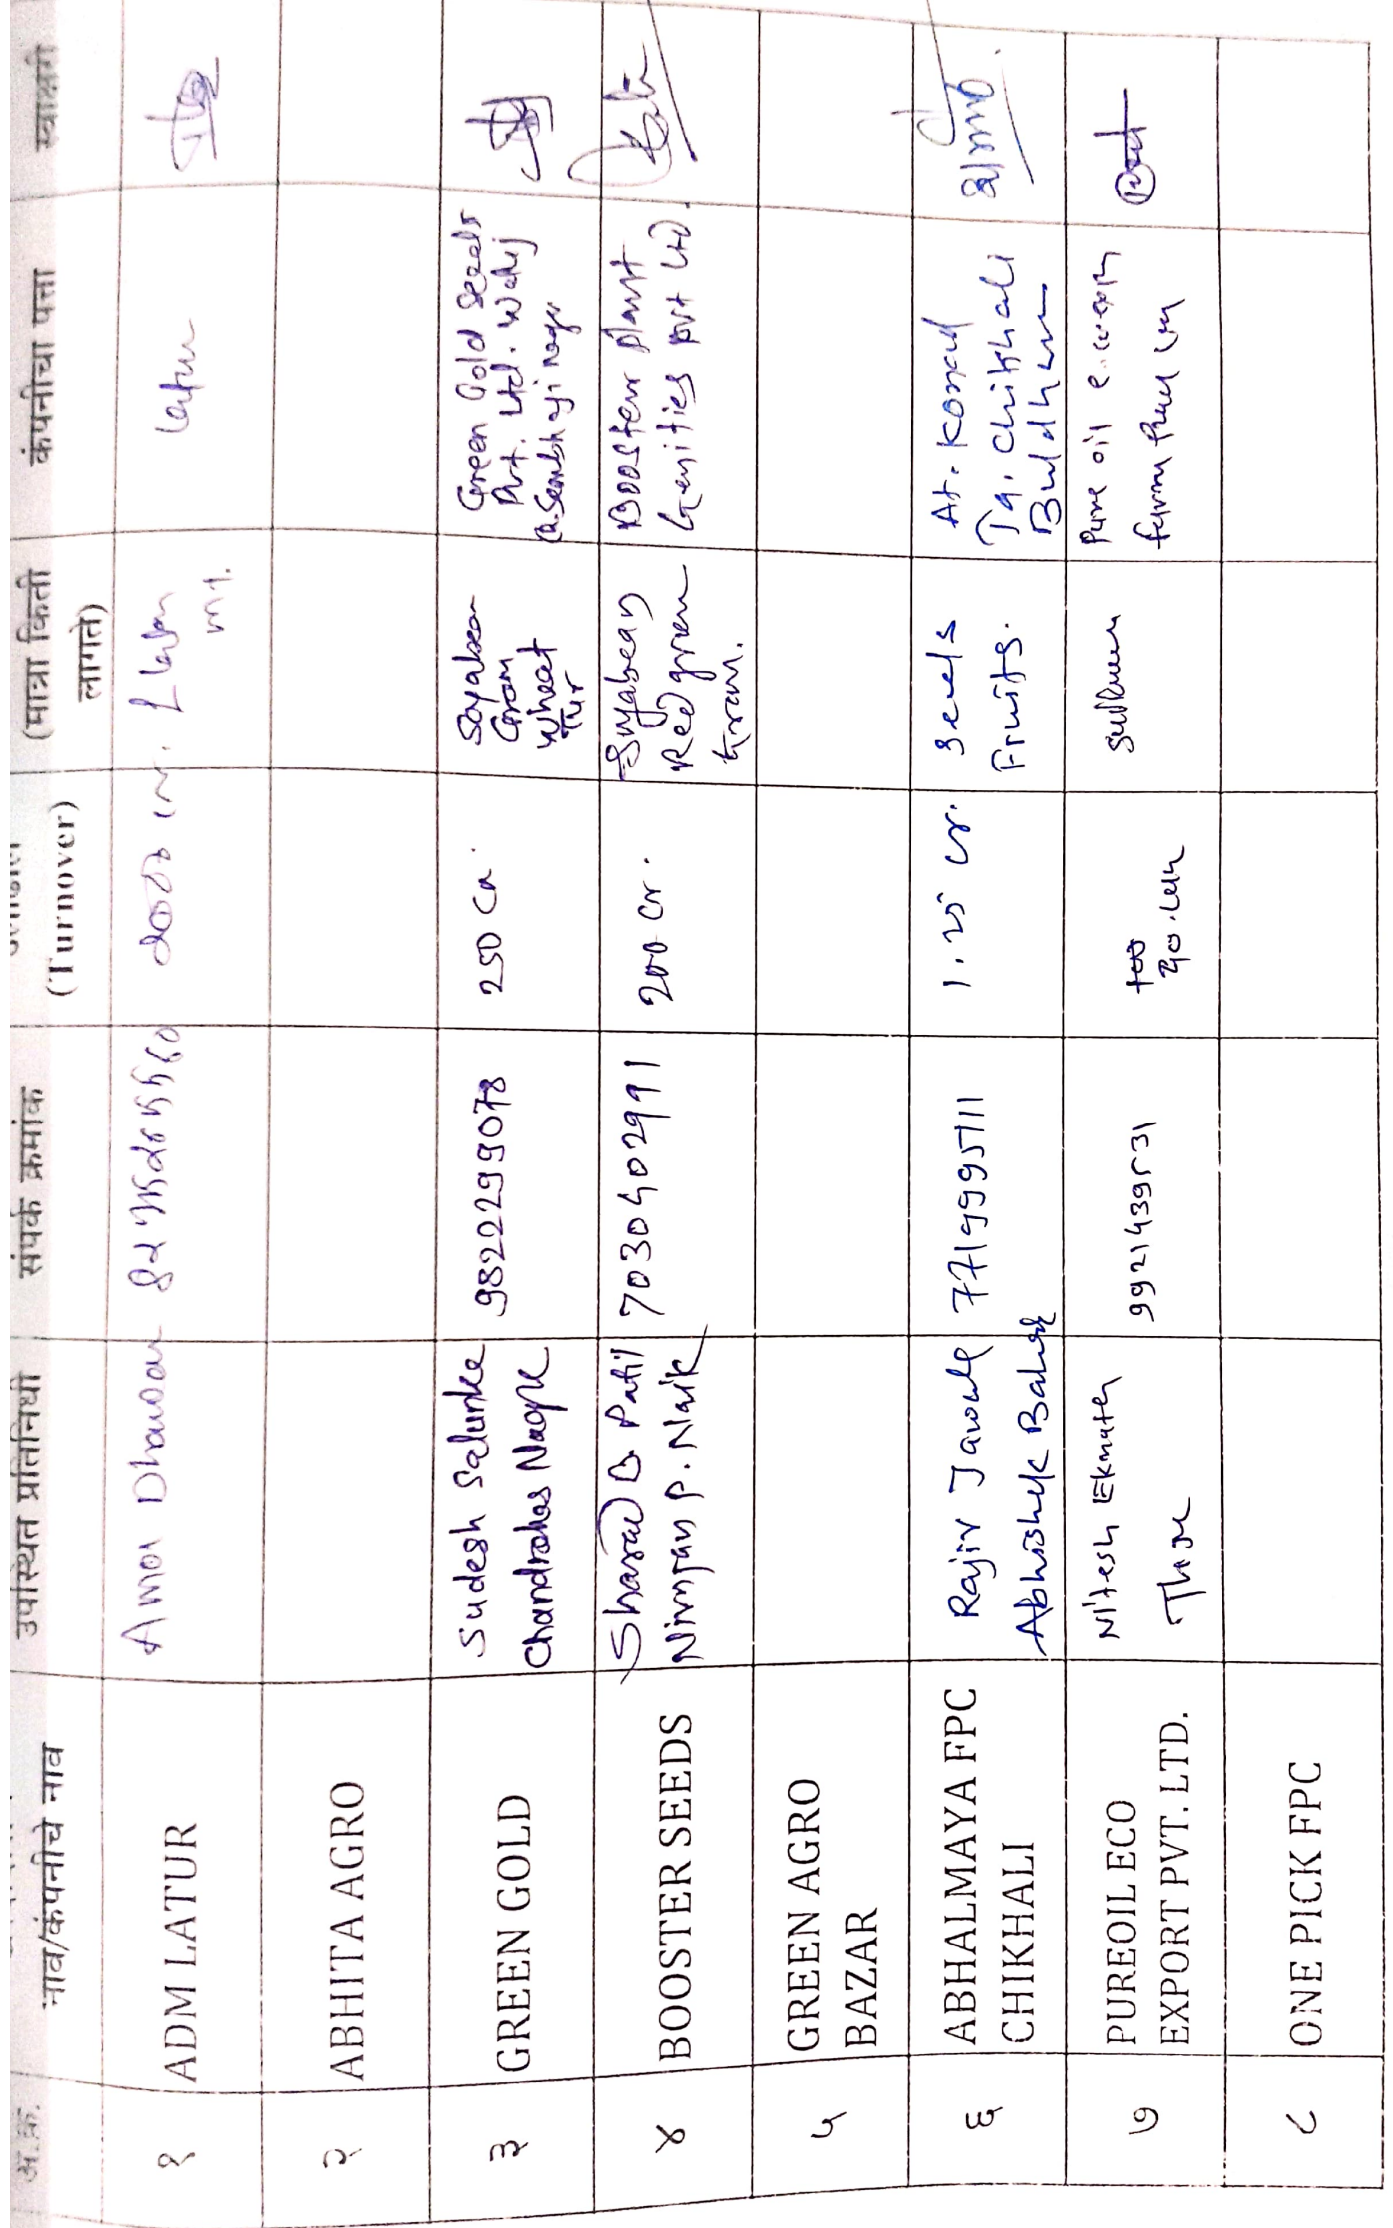 अ.क्र.
नाव/कंपनीचे नाव
उपस्थित प्रतिनिधी
संपर्क क्रमांक
(Turnover)
(मात्रा किती
लागते)
कंपनीचा पत्ता
स्वाक्षरी
१
ADM LATUR
Amol Dhawan
Latur
२
ABHITA AGRO
३
GREEN GOLD
Sudesh Salunke
Chandrahas Nagre
9822299078
250 Cr.
Soyabean
Gram
Wheat
Tur
Green Gold Seeds
Pvt. Ltd. Waluj
४
BOOSTER SEEDS
Sharad B Patil
Niranjan P. Naik
7030402991
200 Cr.
Soyabean
Red gram
Gram.
Booster plant
Genities pvt Ltd.
५
GREEN AGRO
BAZAR
६
ABHALMAYA FPC
CHIKHALI
Rajiv Jawale
Abhishek
7719995111
1.25 Cr.
Seeds
Fruits.
At. Konad
Tq. Chikhali
Buldhana
७
PUREOIL ECO
EXPORT PVT. LTD.
Nitesh Eknath
Thore
9921439531
90. Lakh
Pure oil
८
ONE PICK FPC